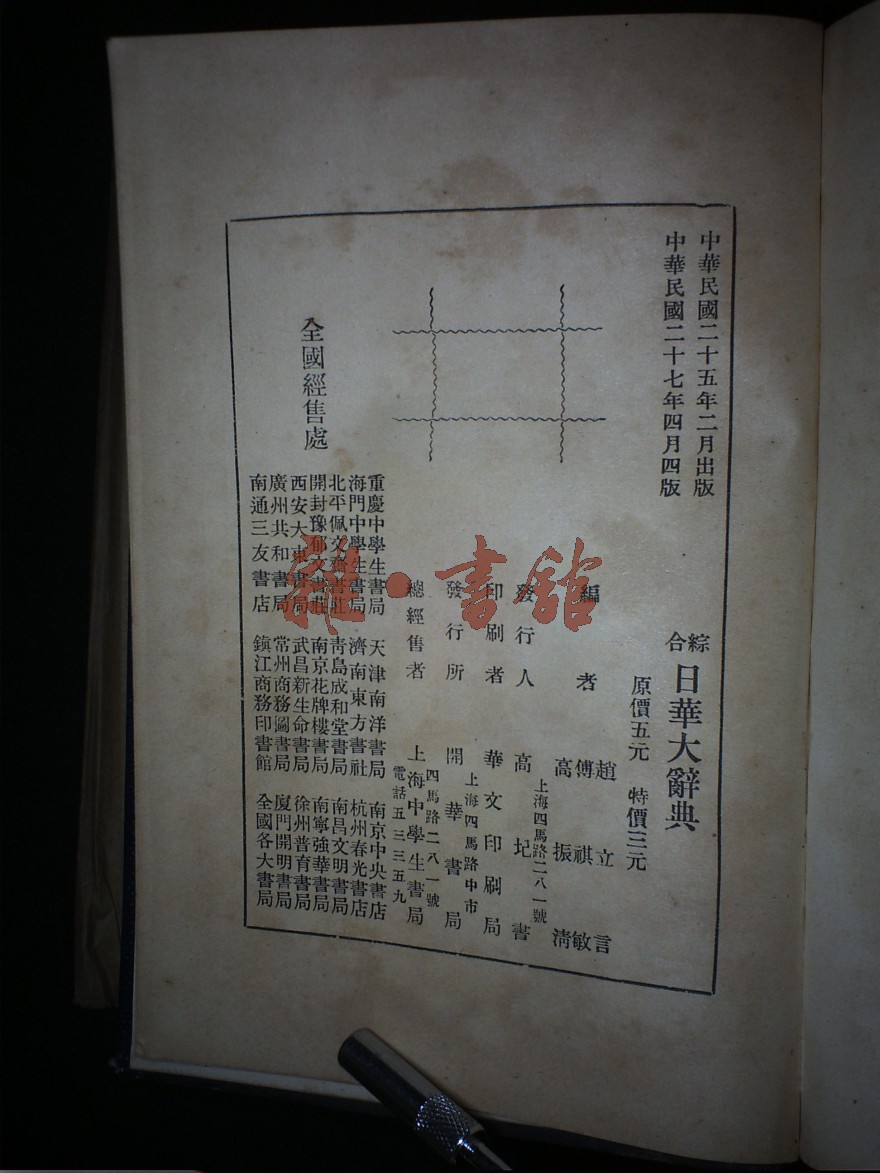 中華民國二十五年二月出版
中華民國二十七年四月四版
綜合
日華大辭典
原價五元 特價三元
編者
趙立言
傅祺敏
高振清
發行人 高圮書
上海四馬路二八一號
印刷者 華文印刷局
上海四馬路中市
發行所 開華書局
四馬路二八一號
總經售者 上海中學生書局
電話五三三五九
全國經售處
重慶中學生書局 天津南洋書局 南京中央書店
海門中學生書局 濟南東方書社 杭州春光書店
北平佩文齋書莊 青島成和堂書局 南昌文明書局
開封豫郁文書莊 南京花牌樓書局 南寧強華書局
西安大東書局 武昌新生命書局 徐州普育書局
廣州共和書局 常州商務圖書局 廈門開明書局
南通三友書店 鎮江商務印書館 全國各大書局
書館